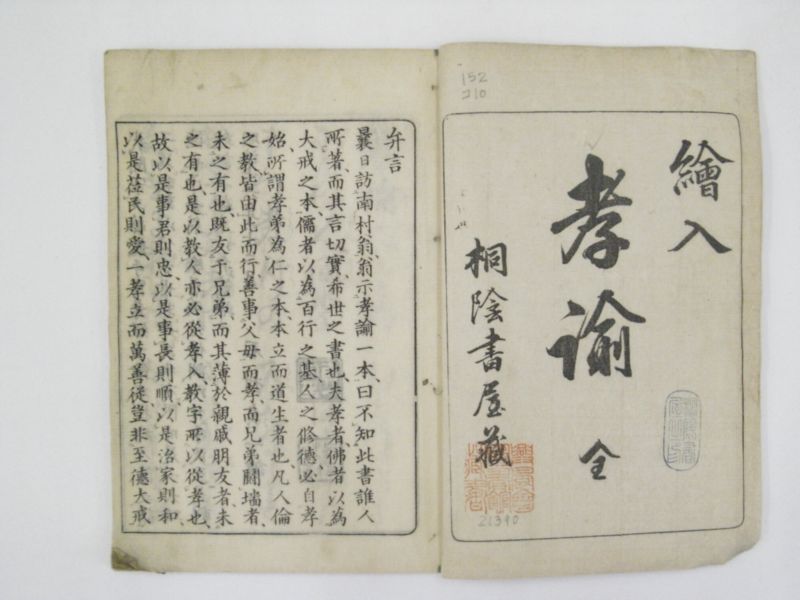 152
コ10
繪入
孝諭
全
桐陰書屋藏
21390
弁言
曩日訪南村翁、翁示孝諭一本、曰不知此書誰人
所著、而其言切實、希世之書也、夫孝者、佛者以為
大戒之本、儒者以為百行之基、人之脩德必自孝
始、所謂孝弟為仁之本、本立而道生者也、凡人倫
之教皆由此而行、善事父母而孝、而兄弟鬩墻者、
未之有也、既友于兄弟、而其薄於親戚朋友者、未
之有也、是以教人亦必從孝入、教字所以從孝也、
故以是事君則忠、以是事長則順、以是治家則和
以是莅民則愛、一孝立而萬善從、豈非至德大戒